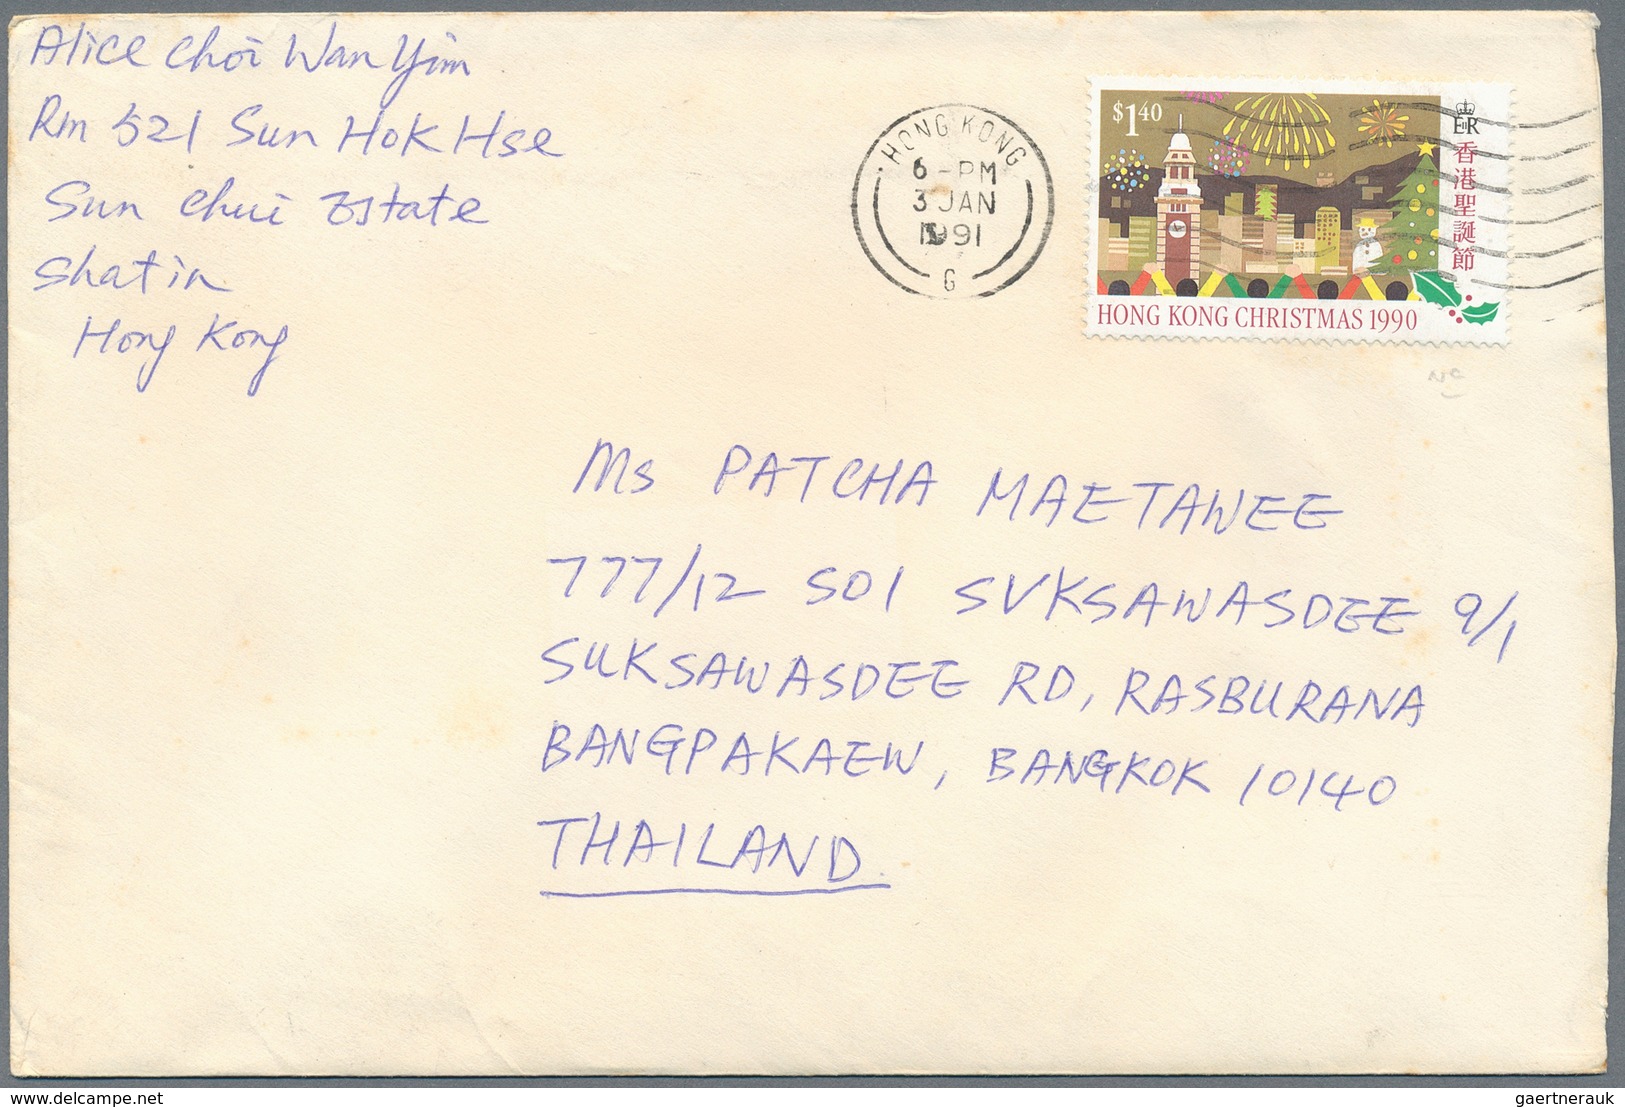 Alice Choi Wan Yim
Rm 521 Sun Hok Hse
Sun Chui Estate
Shatin
Hong Kong
HONG KONG
6-PM
3 JAN
1991
G
$1.40
EIIR
香港聖誕節
HONG KONG CHRISTMAS 1990
NC
Ms PATCHA MAETAWEE
777/12 SOI SUKSAWASDEE 9/1
SUKSAWASDEE RD, RASBURANA
BANGPAKAEW, BANGKOK 10140
THAILAND.
www.delcampe.net
gaertnerauk